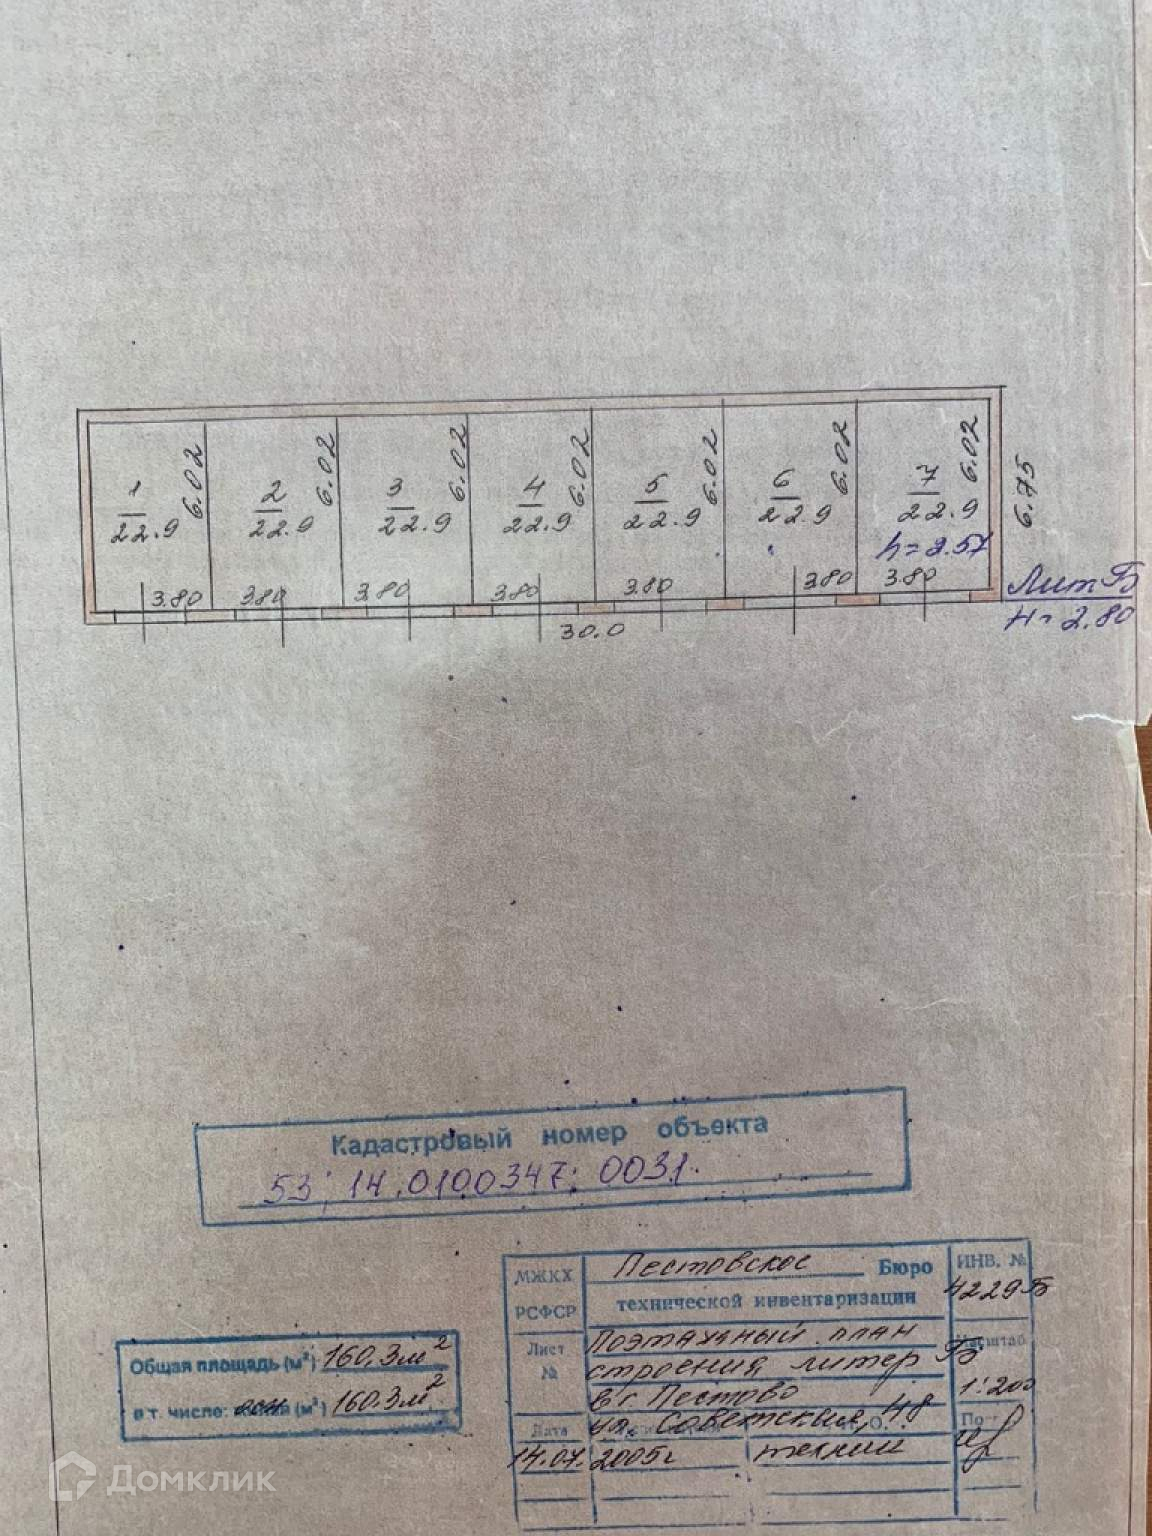 1
22.9
6.02
2
22.9
6.02
3
22.9
6.02
4
22.9
6.02
5
22.9
6.02
6
22.9
6.02
7
22.9
6.02
h=2.57
6.75
3.80
3.80
3.80
3.80
3.80
3.80
3.80
30.0
Лит Б
H=2.80
Кадастровый номер объекта
53:14.0100347:0031.
МЖКХ
РСФСР
Пестовское Бюро
технической инвентаризации
ИНВ. №
4229Б
Лист
№
Поэтажный план
строения, литер Б
в г. Пестово
ул. Советская, 48
Масштаб
1:200
Дата
14.07. 2005г
техник
Общая площадь (м²) 160,3м²
в т. числе: осн (м²) 160.3м²
Домклик